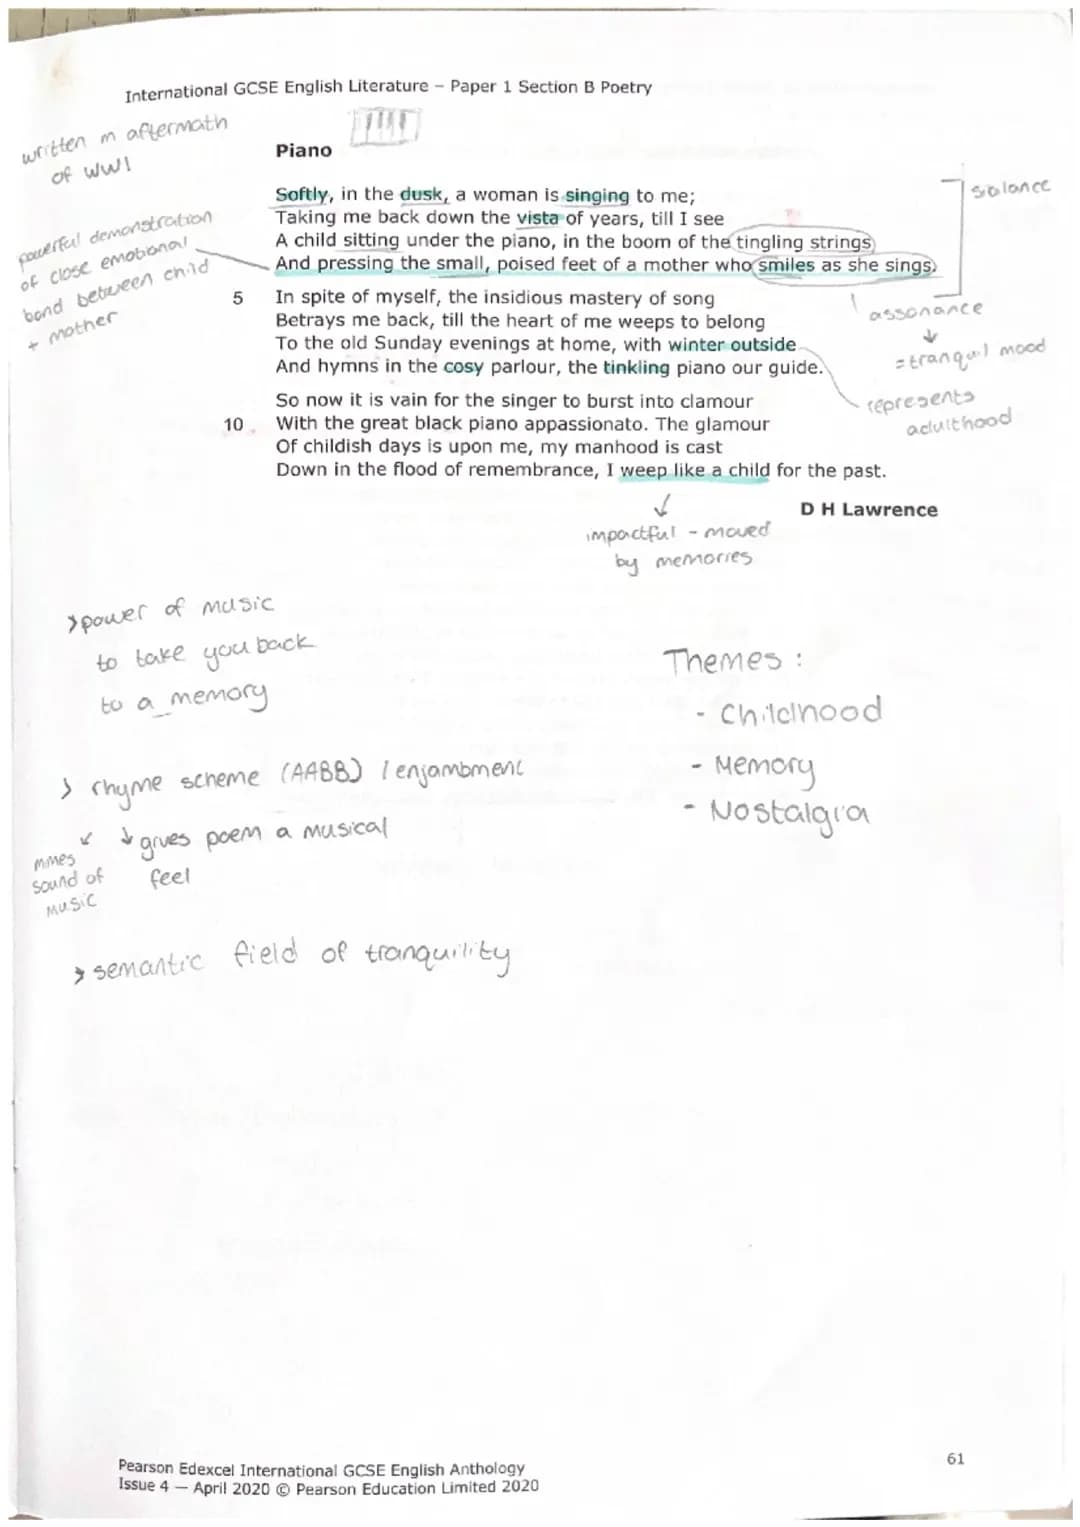 International GCSE English Literature – Paper 1 Section B Poetry
written in aftermath
of WW1
Piano
Softly, in the dusk, a woman is singing to me;
Taking me back down the vista of years, till I see
A child sitting under the piano, in the boom of the tingling strings
And pressing the small, poised feet of a mother who smiles as she sings.
5 In spite of myself, the insidious mastery of song
Betrays me back, till the heart of me weeps to belong
To the old Sunday evenings at home, with winter outside
And hymns in the cosy parlour, the tinkling piano our guide.
So now it is vain for the singer to burst into clamour
10 With the great black piano appassionato. The glamour
Of childish days is upon me, my manhood is cast
Down in the flood of remembrance, I weep like a child for the past.
D H Lawrence
powerful demonstration
of close emotional
bond between child
+ mother
sibilance
assonance
= tranquil mood
represents
adulthood
impactful - moved
by memories
> power of music
to take you back
to a memory
Themes :
- Childhood
- Memory
- Nostalgia
> rhyme scheme (AABB) / enjambment
gives poem a musical
feel
mimes
sound of
music
> semantic field of tranquility
Pearson Edexcel International GCSE English Anthology
Issue 4 — April 2020 © Pearson Education Limited 2020
61